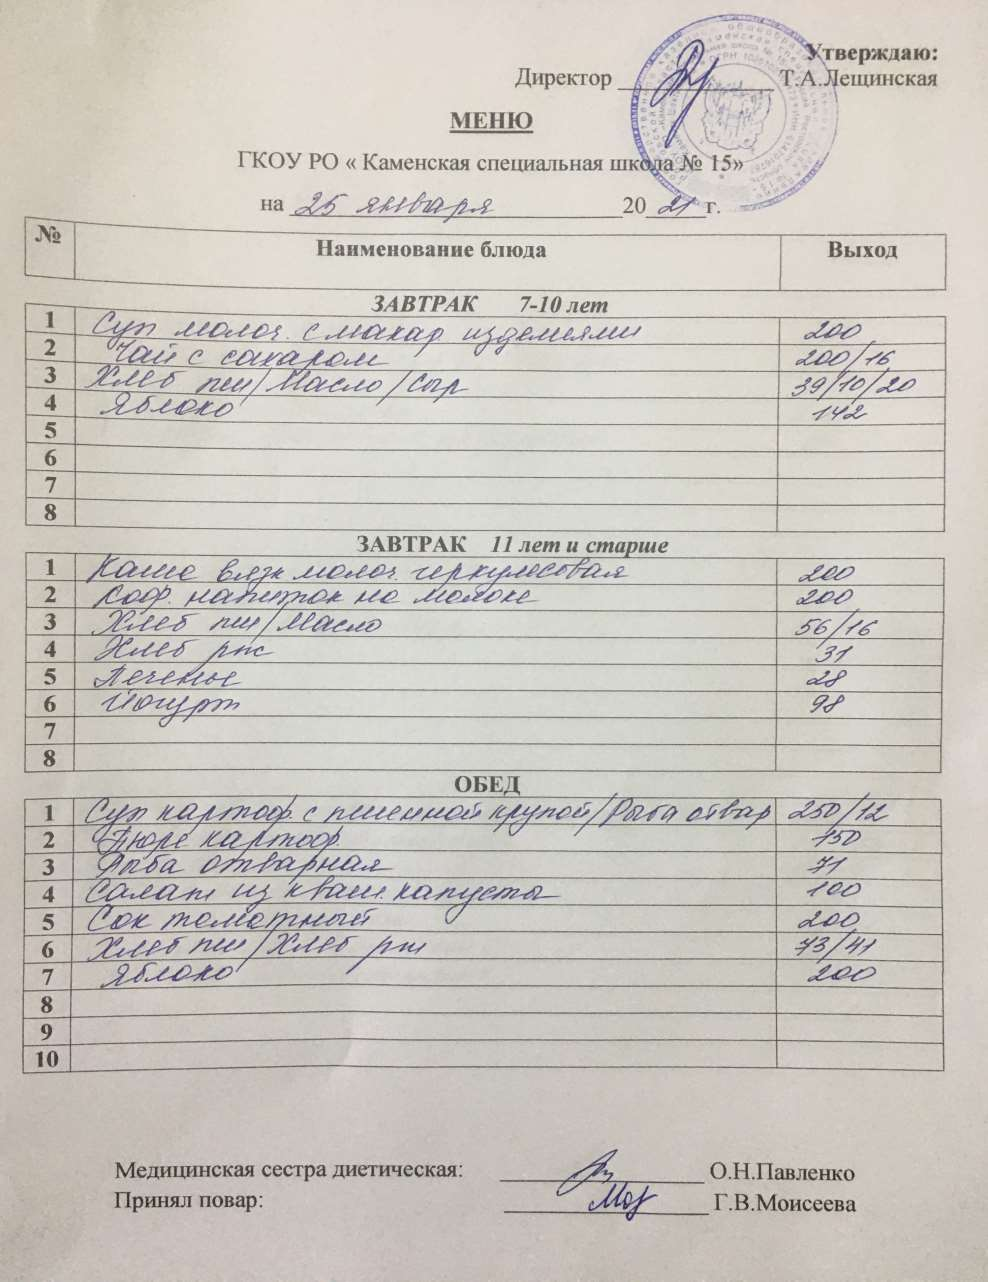 Утверждаю:
Директор Т.А.Лещинская
МЕНЮ
ГКОУ РО « Каменская специальная школа № 15»
на 25 января 20 21 г.
№ Наименование блюда Выход
ЗАВТРАК 7-10 лет
1 Суп молоч. с макар. изделиями 200
2 Чай с сахаром 200/16
3 Хлеб пш/Масло/Сыр 39/10/20
4 Яблоко 142
5
6
7
8
ЗАВТРАК 11 лет и старше
1 Каша вязк молоч. геркулесовая 200
2 Коф. напиток на молоке 200
3 Хлеб пш/Масло 56/16
4 Хлеб рж 31
5 Печенье 28
6 Йогурт 98
7
8
ОБЕД
1 Суп картоф. с пшенной крупой/Рыба отвар 250/12
2 Пюре картоф. 150
3 Рыба отварная 71
4 Салат из кваш. капусты 100
5 Сок томатный 200
6 Хлеб пш/Хлеб рж 73/41
7 Яблоко 200
8
9
10
Медицинская сестра диетическая: О.Н.Павленко
Принял повар: Г.В.Моисеева